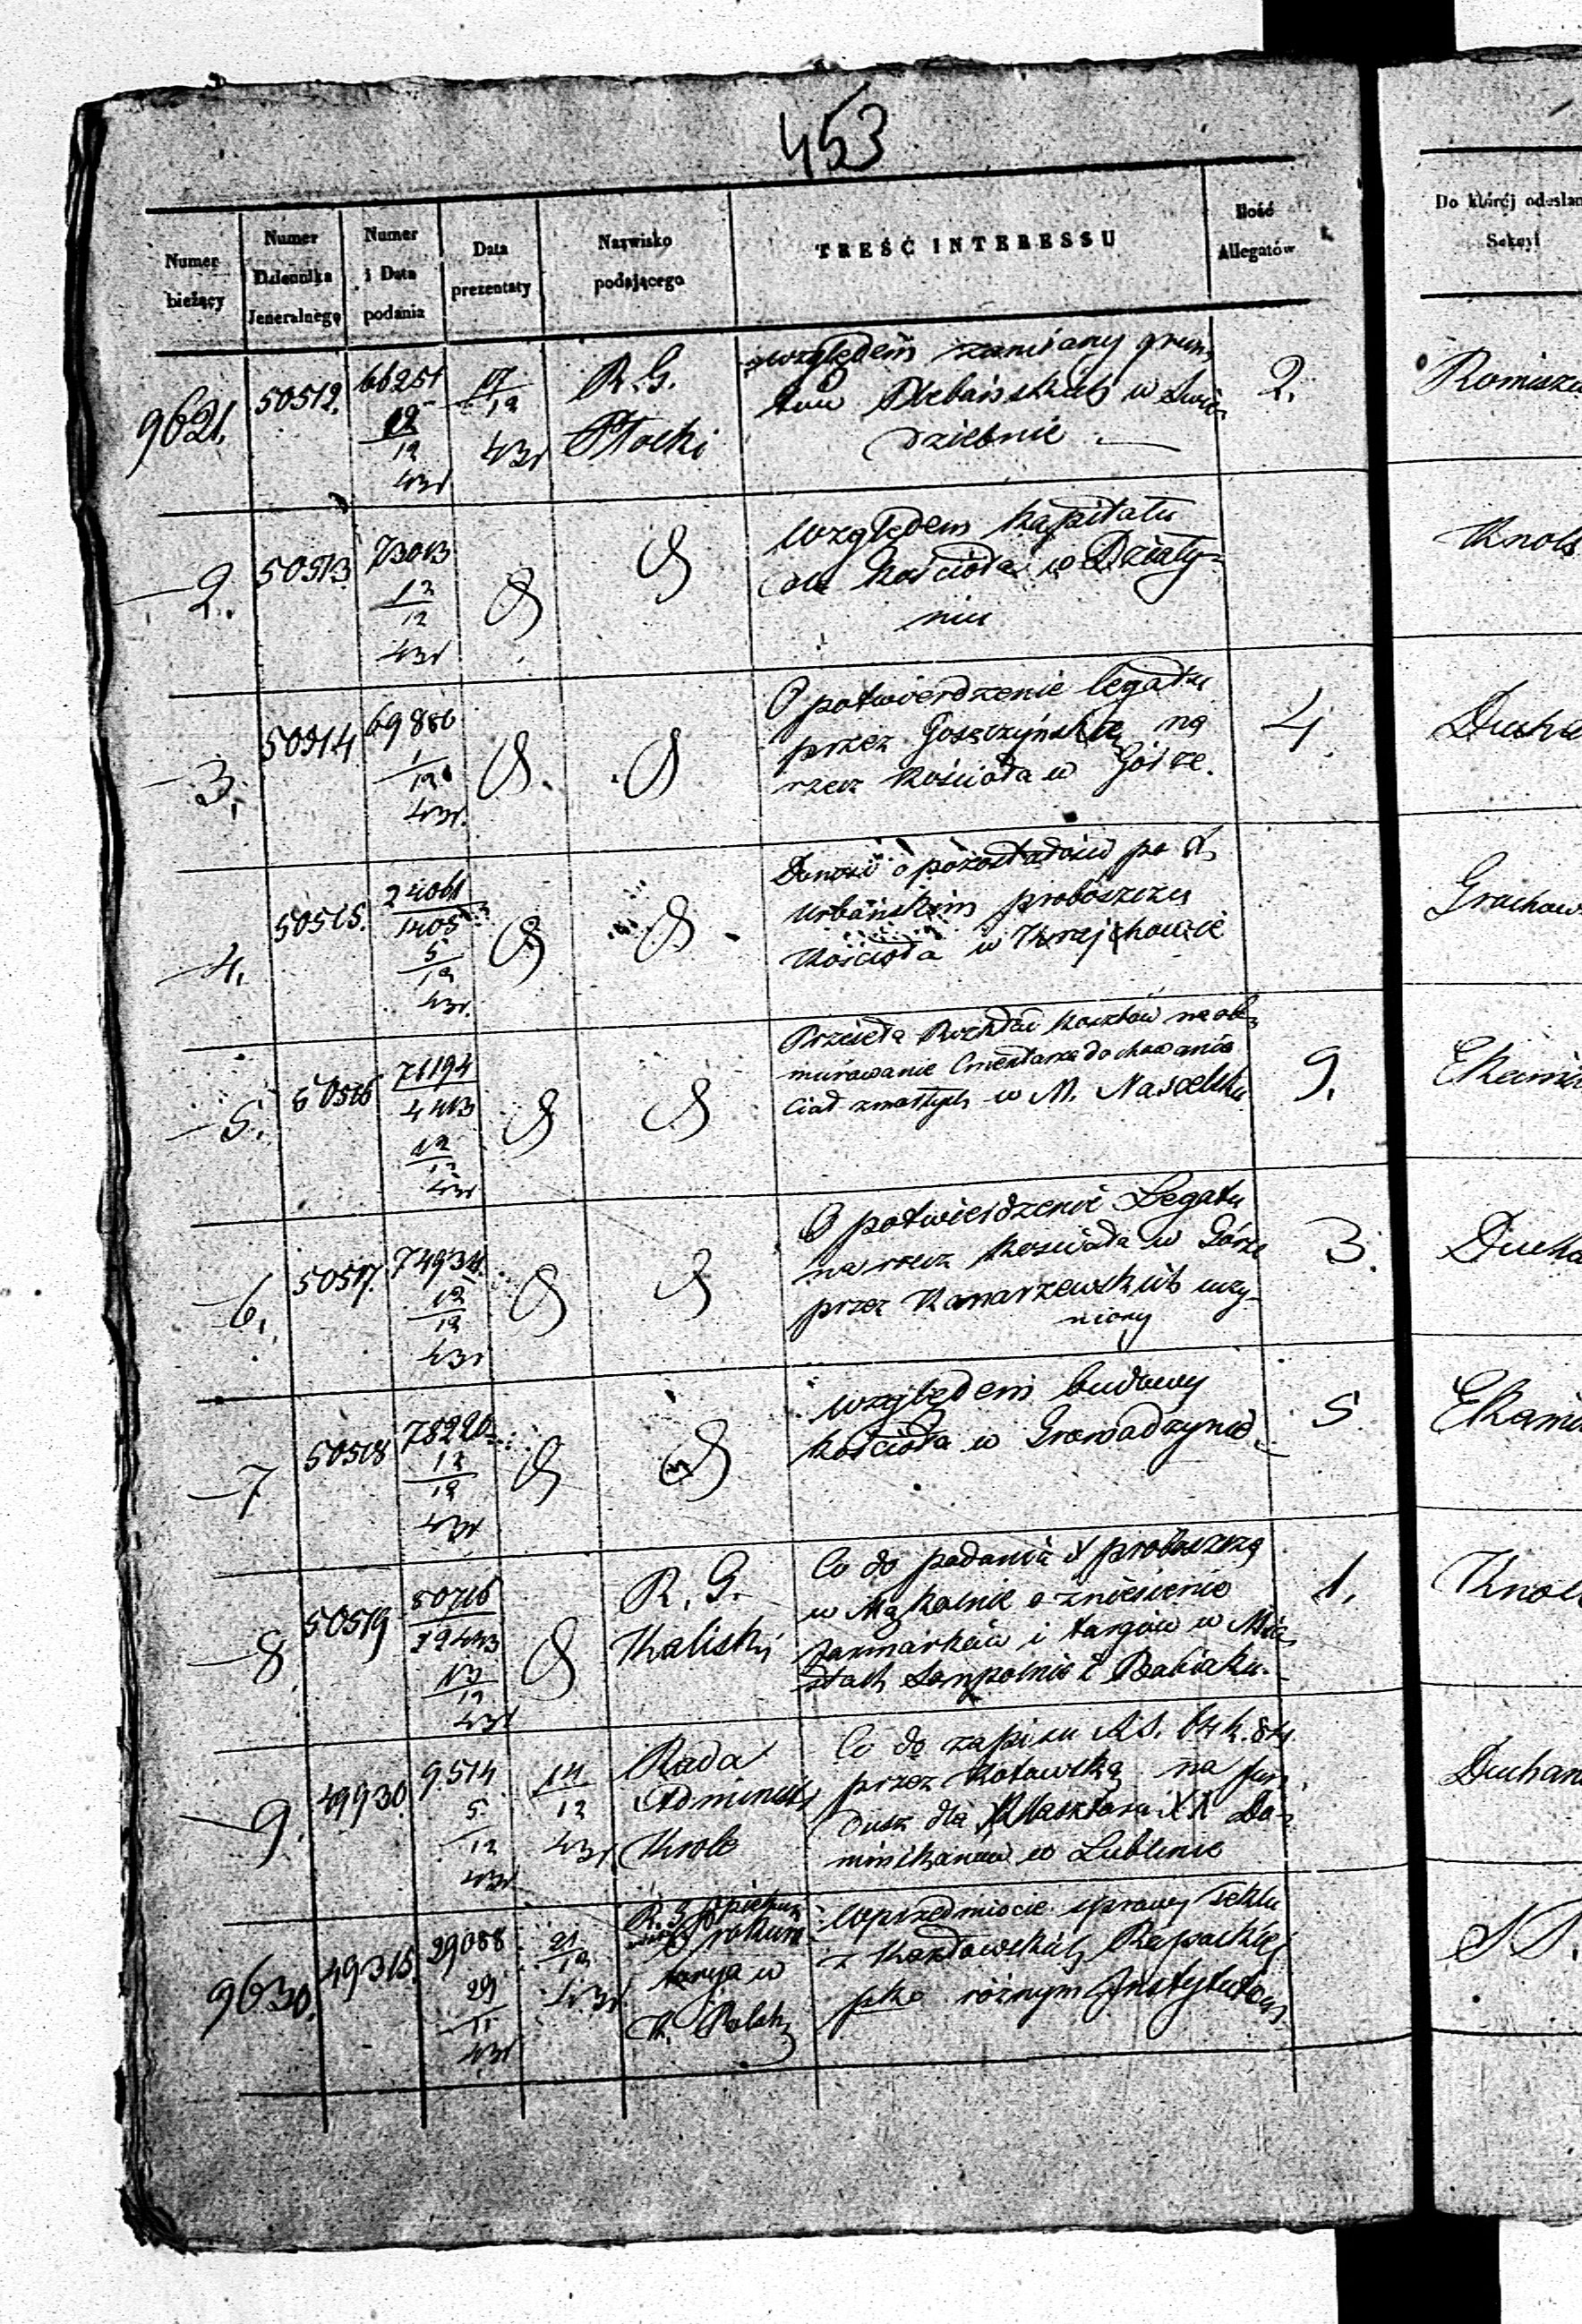 453
Numer bieżący
Numer Dziennika Jeneralnego
Numer i Data podania
Data prezentaty
Nazwisko podającego
TREŚĆ INTERESSU
Ilość Allegatów
Do którój odesłan
Sekcyi
9621. 50512. 66251 12/12 43r 17/12 43r R. G. Płocki
względem zamiany grun
tów Plebańskich w Świe
dziebnie
2. Romiszo
2. 50513 73013 12/12 43r
względem kapitału
dla Kościoła w Działy=
niu
Knol
3. 50514 69886 1/12 43r.
O potwierdzenie legatu
przez Goszczyńskę na
rzecz Kościoła w Górze.
4. Ducha
4. 50515. 24061/1405 5/12 43r.
Donosi o pozostałości po X
Urbańskim proboszczu
Kościoła w
Grachow
5. 50516 71194/4413 12/12 43r
Przesiela Rozkład kosztów na ob
murowanie Cmentarza do chowania
Ciał zmarłych w M. Nasielsku
9. EKamin
6. 50517. 74934. 12/12 43r
O potwierdzenie Legatu
na rzecz Kościoła w Górze
przez Kanarzewskich uczy-
niony
3. Ducha
7 50518 78220 12/12 43r
względem budowy
Kościoła w Gromadzynie
5 EKami
8. 50519 80716 13/12 43r R. G. Kaliski
Co do podania X proboszcza
w Mąkolnie o zniesienie
Jarmarków i targów w Mia
stach Sompolnie i Babiaku.
1. Knol
9. 49930. 9514 5/12 43r 14/12 43r Rada Administ Krole
Co do zapisu RS. 64 k. 84
przez Kotowską na fun
dusz dla Klasztoru XX Do=
minikanów w Lublinie
Duchan
9630. 49315. 29088 29/11 43r 21/12 43r
Prokura
torya w
K. Polsk
W przedmiocie sprawy
z Rapackiej
pko różnym Instytutom